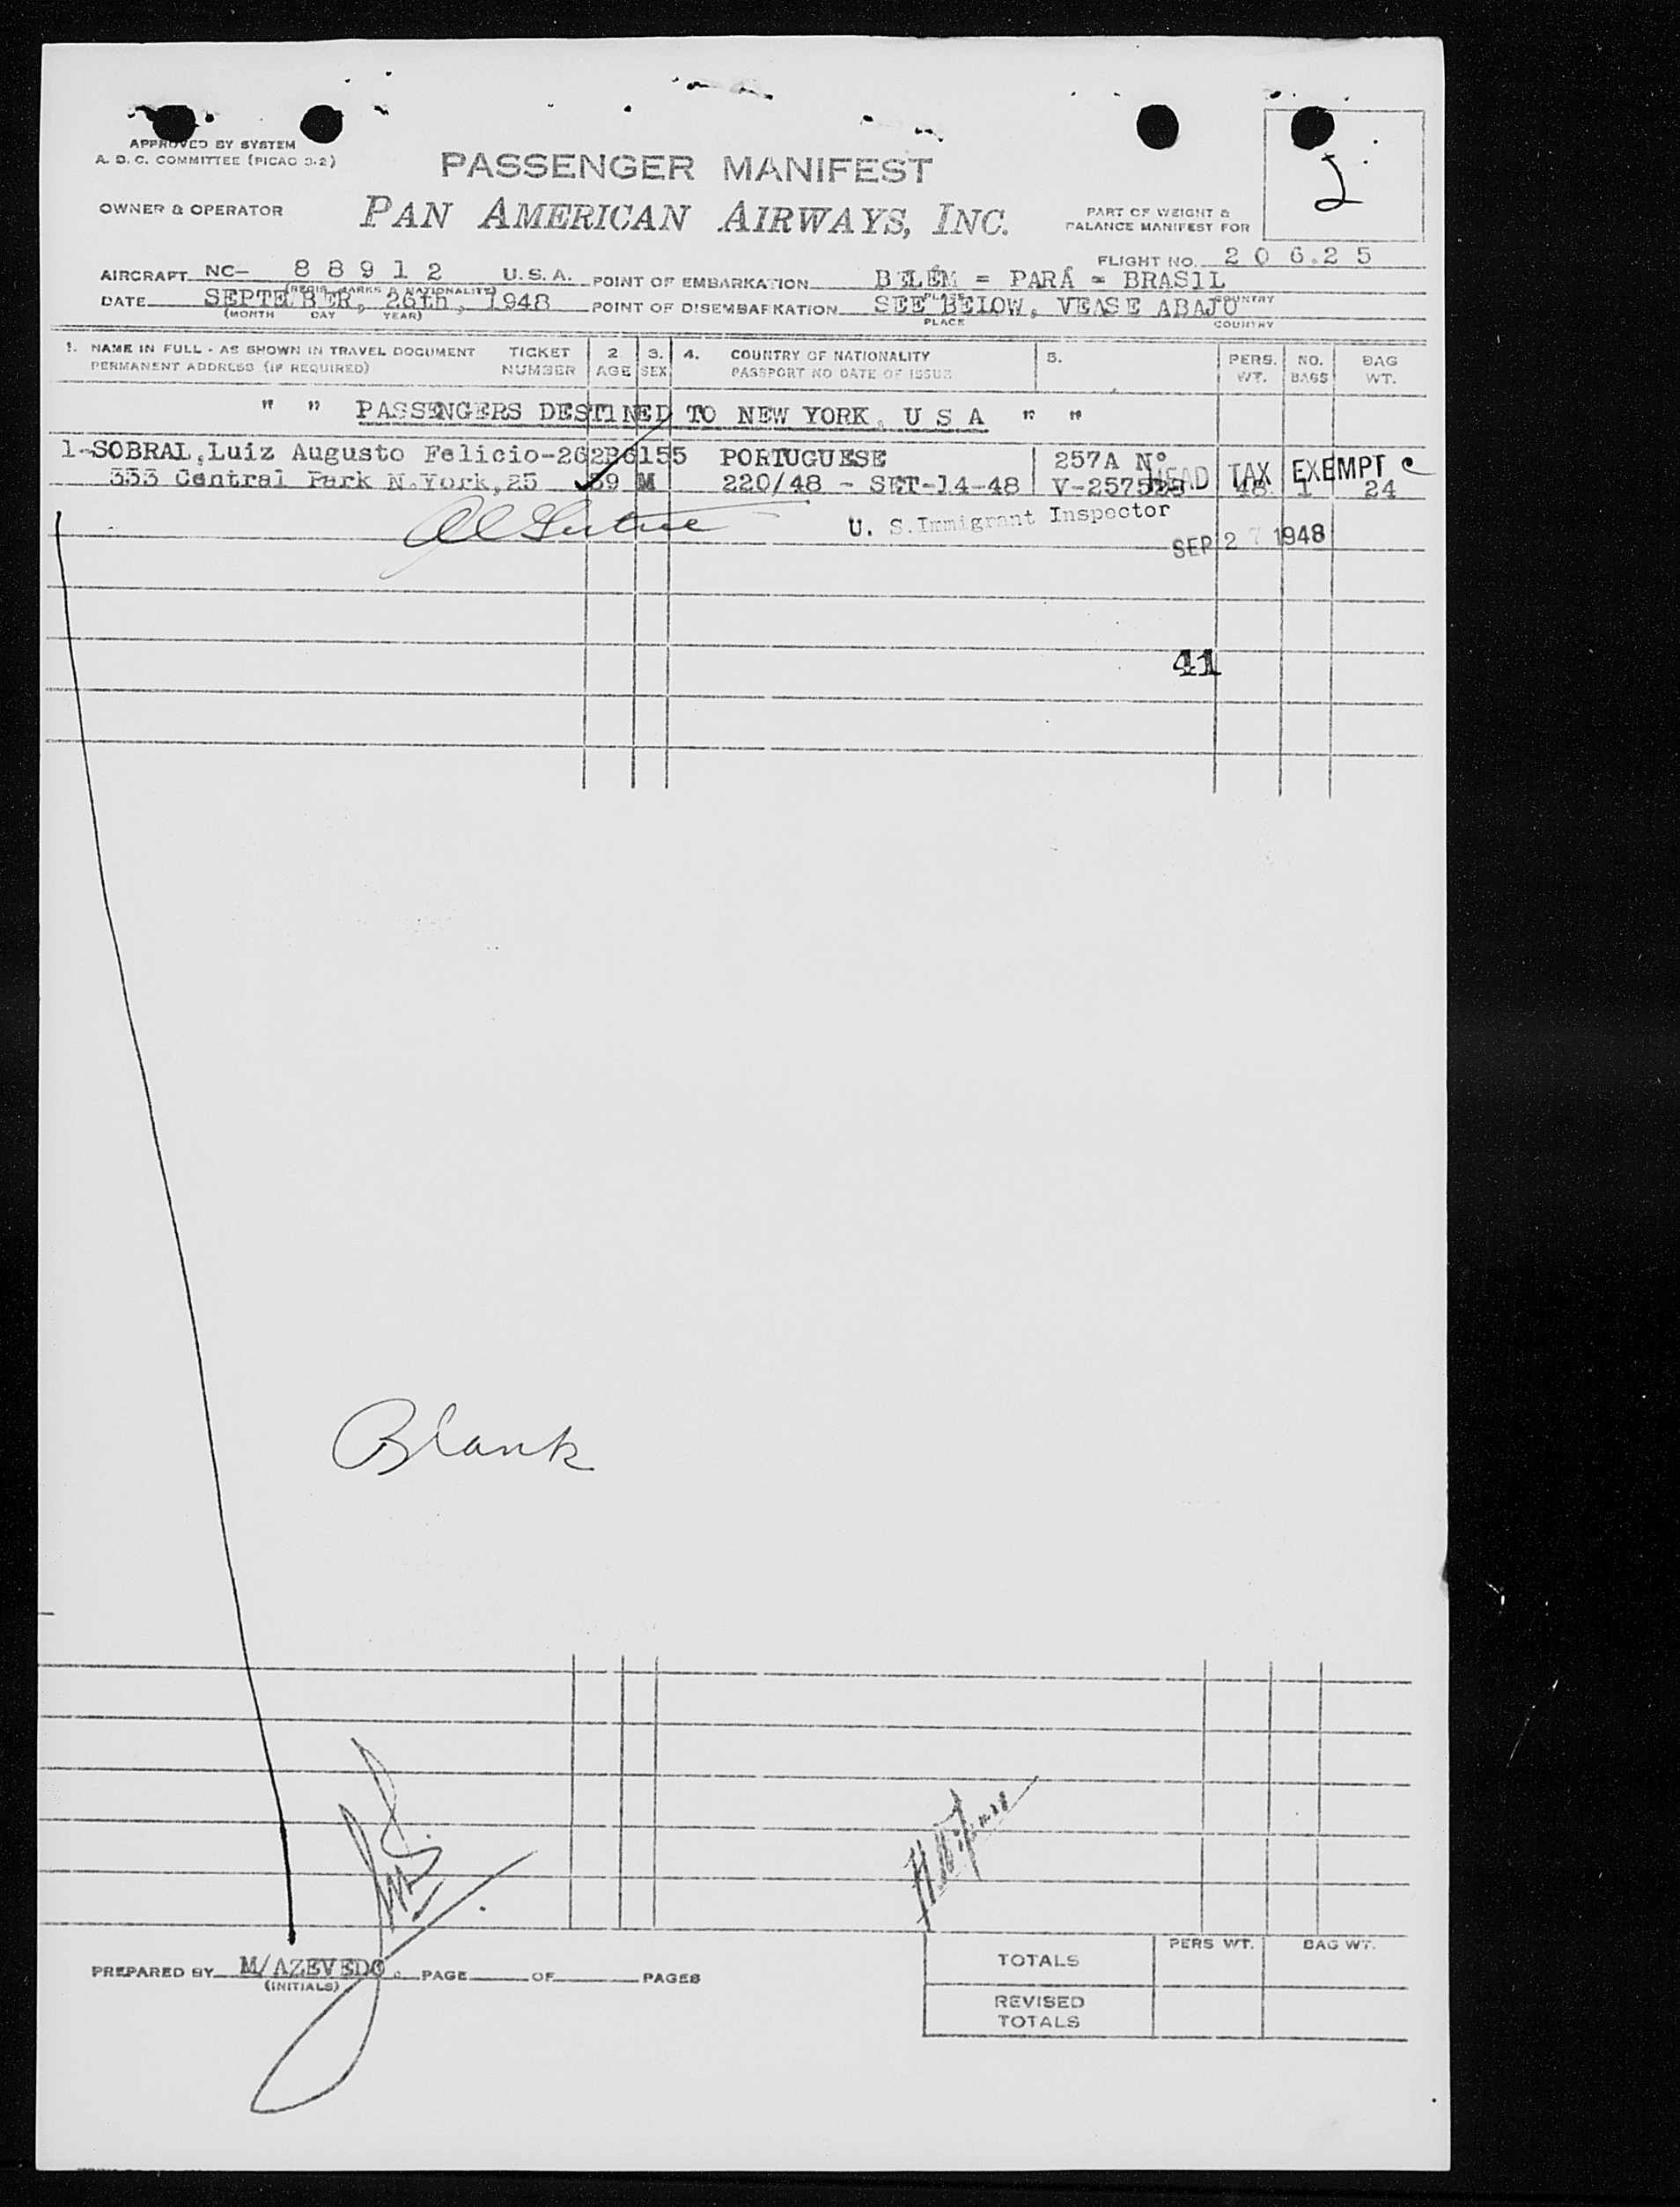 APPROVED BY SYSTEM
A. D. C. COMMITTEE (PICAO 3-2)
PASSENGER MANIFEST
OWNER & OPERATOR
PAN AMERICAN AIRWAYS, INC.
PART OF WEIGHT &
BALANCE MANIFEST FOR
FLIGHT NO. 2 0 6.2 5
AIRCRAFT NC- 8 8 9 1 2 U.S.A. POINT OF EMBARKATION BELÉM = PARÁ = BRASIL
(REGIS. MARKS & NATIONALITY) PLACE COUNTRY
DATE SEPTEMBER, 26th, 1948 POINT OF DISEMBARKATION SEE BELOW, VEASE ABAJO
(MONTH DAY YEAR) PLACE COUNTRY
1. NAME IN FULL - AS SHOWN IN TRAVEL DOCUMENT TICKET 2 3. 4. COUNTRY OF NATIONALITY 5. PERS. NO. BAG
PERMANENT ADDRESS (IF REQUIRED) NUMBER AGE SEX PASSPORT NO DATE OF ISSUE WT. BAGS WT.
" " PASSENGERS DESTINED TO NEW YORK, U S A " "
1-SOBRAL, Luiz Augusto Felicio-262B6155 PORTUGUESE 257A Nº
HEAD TAX EXEMPT
333 Central Park N.York,25 39 M 220/48 - SET-14-48 V-257525 48 1 24
U. S. Immigrant Inspector
SEP 27 1948
41
Blank
PREPARED BY M/AZEVEDO. PAGE OF PAGES
(INITIALS)
PERS WT. BAG WT.
TOTALS
REVISED
TOTALS